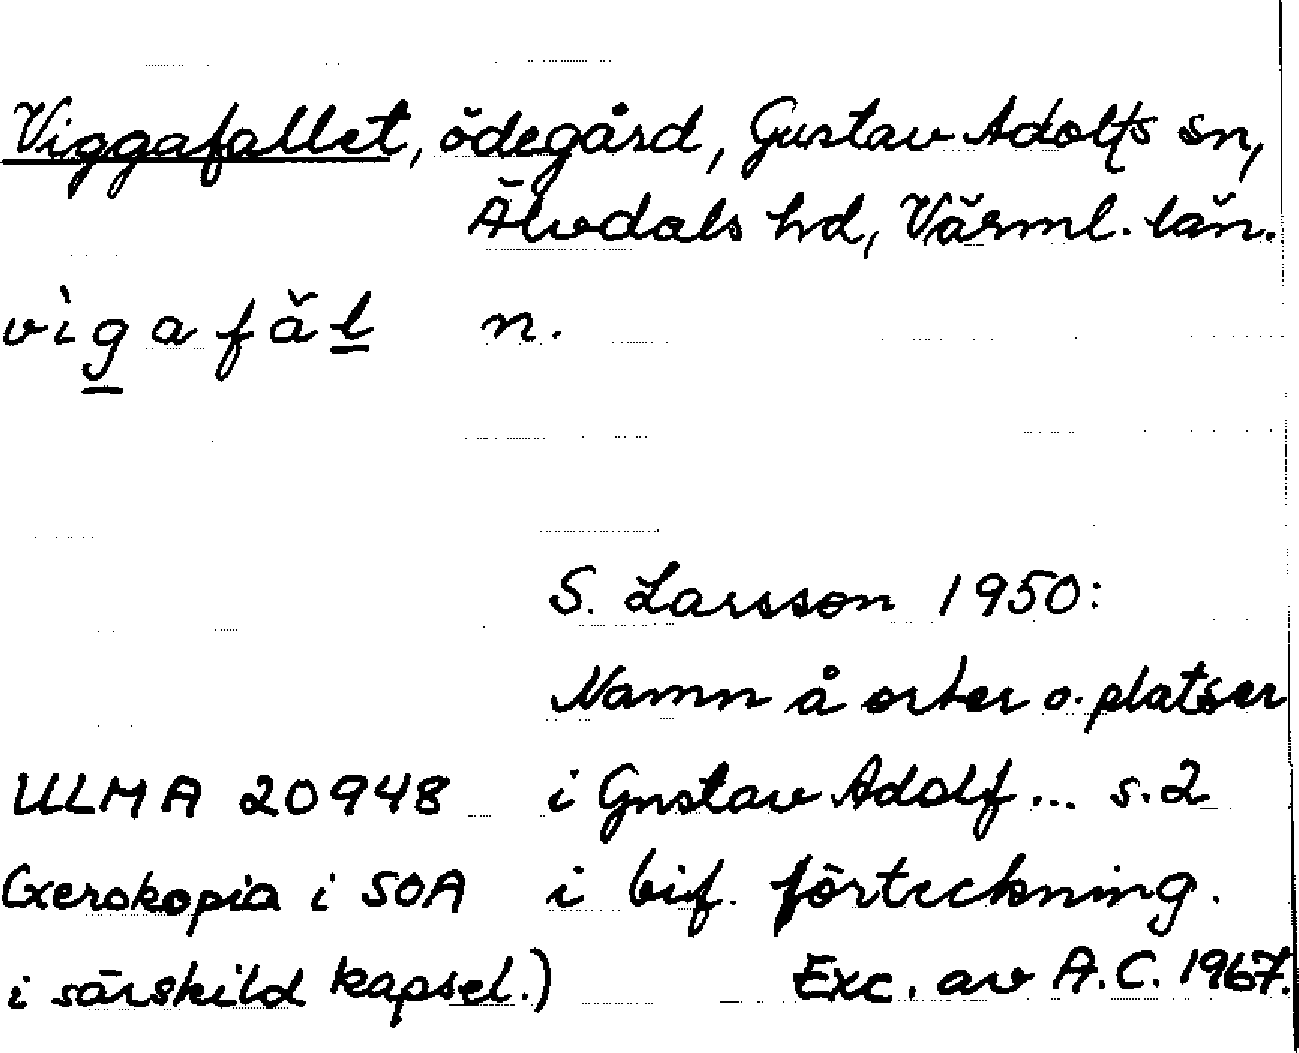 Viggafallet, ödegård, Gustav Adolfs sn,
Älvdals hd, Värml. län.
vìgafăl n.
S. Larsson 1950:
Namn å orter o. platser
ULMA 20948 i Gustav Adolf... s. 2
(xerokopia i SOA i bif. förteckning.
i särskild kapsel.) Exc. av A.C. 1967.